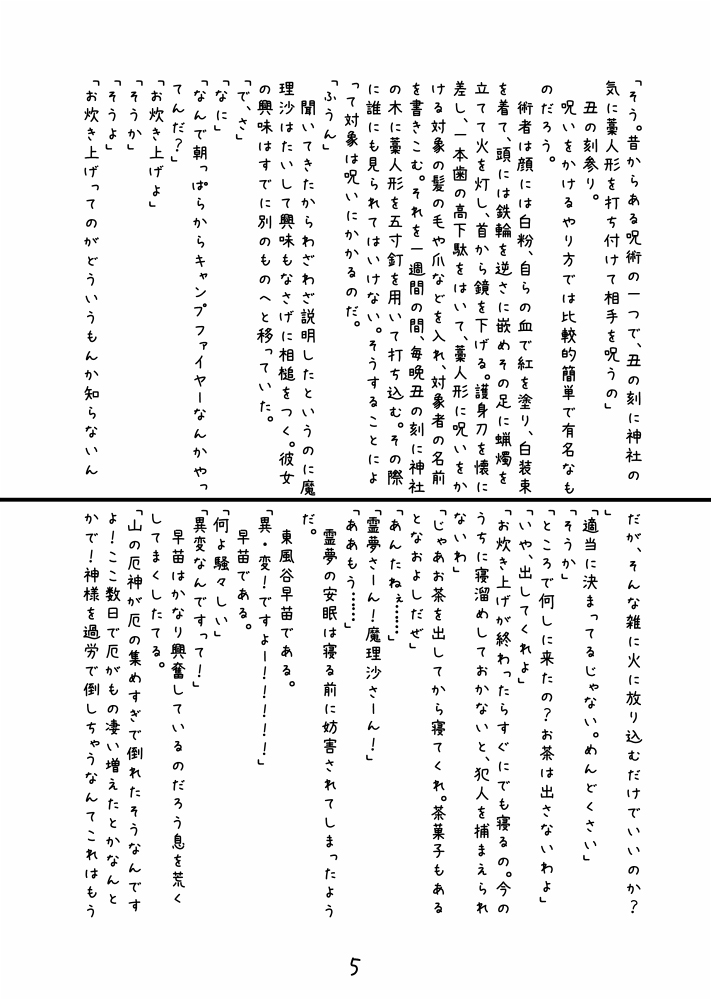 「そう。昔からある呪術の一つで、丑の刻に神社の
気に藁人形を打ち付けて相手を呪うの」
　丑の刻参り。
　呪いをかけるやり方では比較的簡単で有名なも
のだろう。
　術者は顔には白粉、自らの血で紅を塗り、白装束
を着て、頭には鉄輪を逆さに嵌めその足に蝋燭を
立てて火を灯し、首から鏡を下げる。護身刀を懐に
差し、一本歯の高下駄をはいて、藁人形に呪いをか
ける対象の髪の毛や爪などを入れ、対象者の名前
を書きこむ。それを一週間の間、毎晩丑の刻に神社
の木に藁人形を五寸釘を用いて打ち込む。その際
に誰にも見られてはいけない。そうすることによ
って対象は呪いにかかるのだ。
「ふうん」
　聞いてきたからわざわざ説明したというのに魔
理沙はたいして興味もなさげに相槌をつく。彼女
の興味はすでに別のものへと移っていた。
「で、さ」
「なに」
「なんで朝っぱらからキャンプファイヤーなんかやっ
てんだ？」
「お炊き上げよ」
「そうか」
「そうよ」
「お炊き上げってのがどういうもんか知らないん
だが、そんな雑に火に放り込むだけでいいのか？
」
「適当に決まってるじゃない。めんどくさい」
「そうか」
「ところで何しに来たの？お茶は出さないわよ」
「いや、出してくれよ」
「お炊き上げが終わったらすぐにでも寝るの。今の
うちに寝溜めしておかないと、犯人を捕まえられ
ないわ」
「じゃあお茶を出してから寝てくれ。茶菓子もある
となおよしだぜ」
「あんたねぇ……」
「霊夢さーん！魔理沙さーん！」
「ああもう……」
　霊夢の安眠は寝る前に妨害されてしまったよう
だ。
　東風谷早苗である。
「異・変！ですよー！！！！！」
　早苗である。
「何よ騒々しい」
「異変なんですって！」
　早苗はかなり興奮しているのだろう息を荒く
してまくしたてる。
「山の厄神が厄の集めすぎで倒れたそうなんです
よ！ここ数日で厄がもの凄い増えたとかなんと
かで！神様を過労で倒しちゃうなんてこれはもう
5